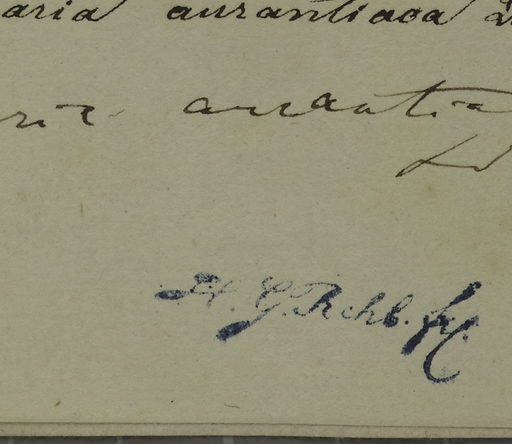 aria aurantiaca
aurantia
H. G. Rchb. fil.